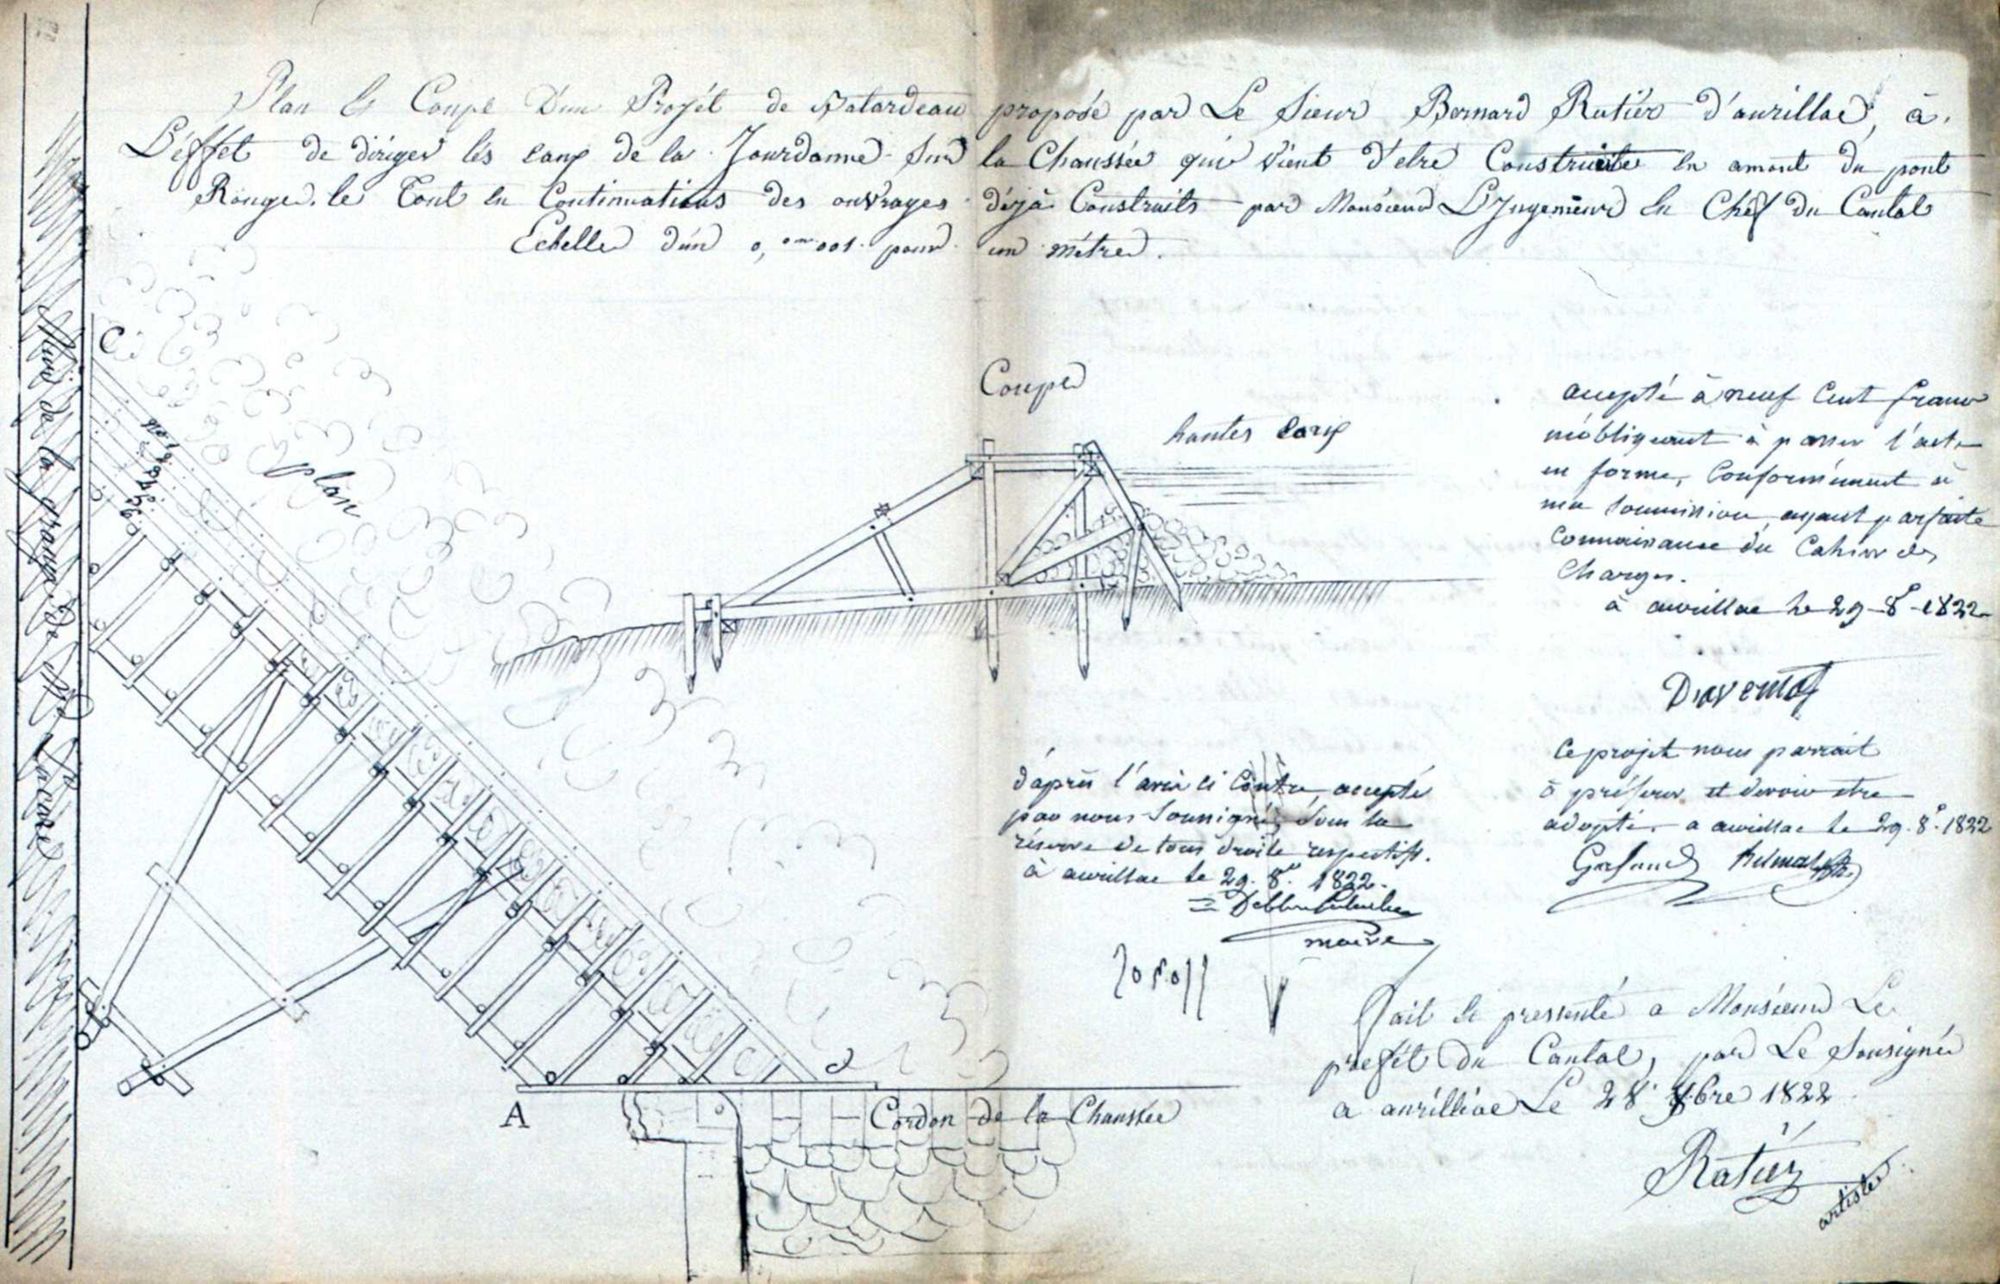 Plan et Coupe D'un Projét de Batardeau proposé par Le Sieur Bernard Ratiér d'aurillac, à
L'éffet de diriger lés eaux de la Jourdanne sur la Chaussée qui vient d'etre Construite en amont du pont
Rouge. le Tout en Continuations des ouvrages déja Construits par Monsieur L'Ingenieur En Chéf du Cantal
Echelle d'un 0,m001 pour un métre.
C
Mur de la grange de Mr Lacarr
plan
Coupe
hautes eaux
accepté à neuf Cent francs
m'obligeant à passer l'acte
en forme, Conformément à
ma soumission, ayant parfaite
Connaissance du Cahier des
Charges.
à aurillac le 29 8e 1822
ce projet nous parrait
à préférer et devoir etre
adopté. a aurillac le 29. 8e. 1822
d'après l'avis ci Contre, accepté
par nous soussigné, sous la
réserve de tous droits respectifs.
à aurillac le 29. 8e. 1822.
maire
Fait et pressenté a Monsieur Le
préfét du Cantal, par Le Sousigné
a aurilliac Le 28 8bre 1822
Ratiér
artiste
A
Cordon de la Chaussée